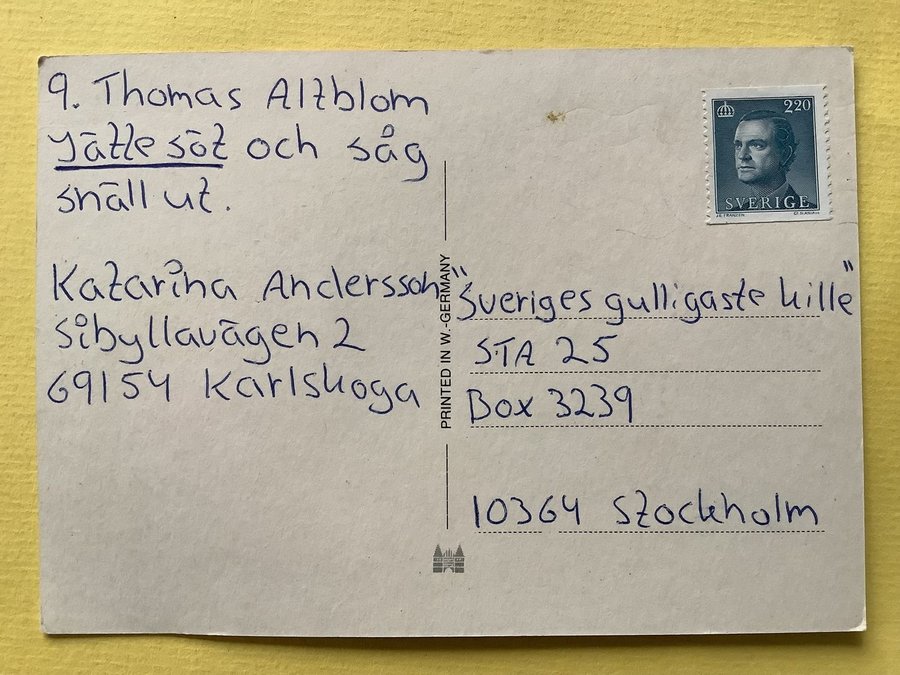 9. Thomas Altblom
Jätte söt och såg
snäll ut.
Katarina Andersson
Sibyllavägen 2
69154 Karlskoga
PRINTED IN W.-GERMANY
220
SVERIGE
"Sveriges gulligaste kille"
STA 25
Box 3239
10364 Stockholm